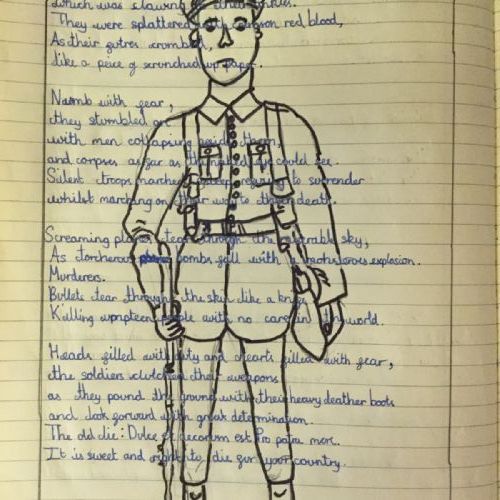 which was clawing their
They were splattered with crimson red blood,
As their futres crumbled,
like a peice of scrunched up paper.
Numb with fear,
they stumbled on
with men collapsing beside them,
and corpses as far as the naked eye could see.
Silent troops marched refusing to surrender
whilst marching on their way to their death.
Screaming planes tear through the miserable sky,
As torcherous bombs fall with a trecherous explosion.
Murderers.
Bullets tear through the skin like a knife
Killing people with no care in the world.
Heads filled with duty and hearts filled with fear,
the soldiers clutched their weapons
as they pound the ground with their heavy leather boots
and look forward with great determination.
The old lie: Dulce et decorum est Pro patria mori.
It is sweet and right to die for your country.